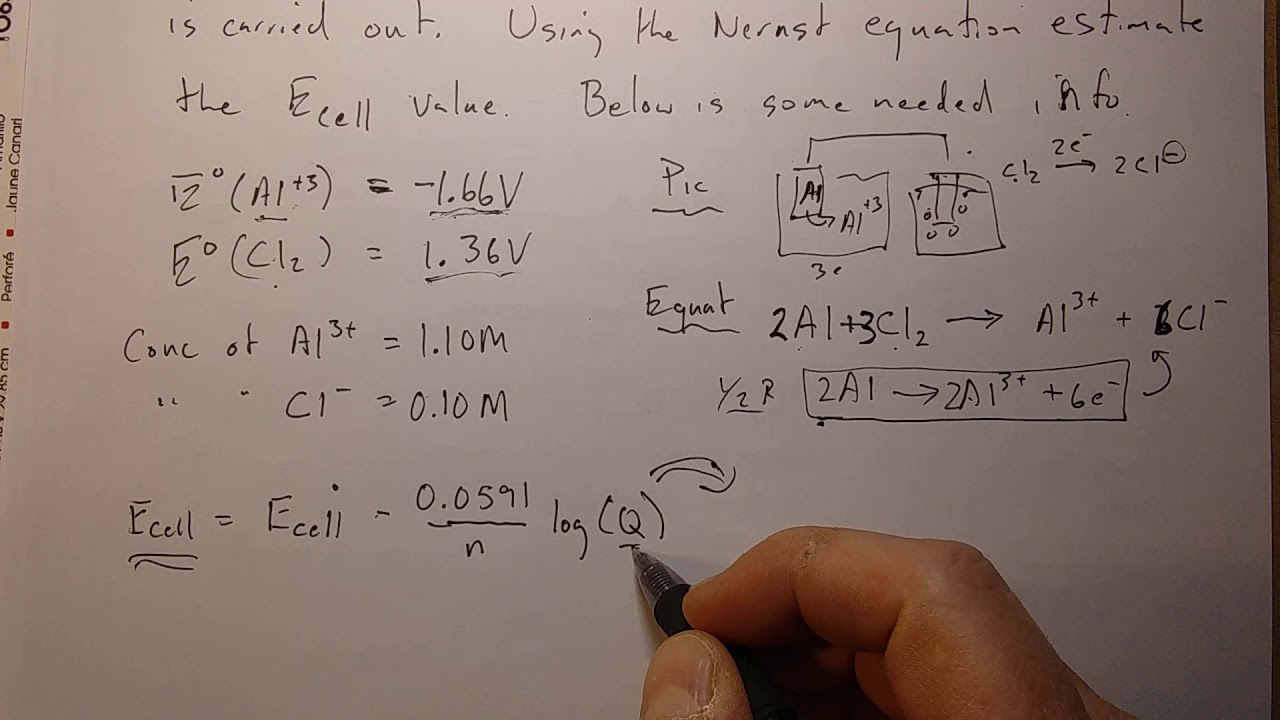 is carried out. Using the Nernst equation estimate
the Ecell value. Below is some needed info.
E°(Al+3) = -1.66V
E°(Cl2) = 1.36V
Conc of Al3+ = 1.10M
" " Cl- = 0.10M
Pic
Al
Al+3
3e
Cl2 2e-→ 2Cl⊖
Equat 2Al+3Cl2 → Al3+ + 6Cl-
1/2 R 2Al → 2Al3+ + 6e-
Ecell = E°cell - 0.0591/n log(Q)
Perforé ▪ Jaune Canari